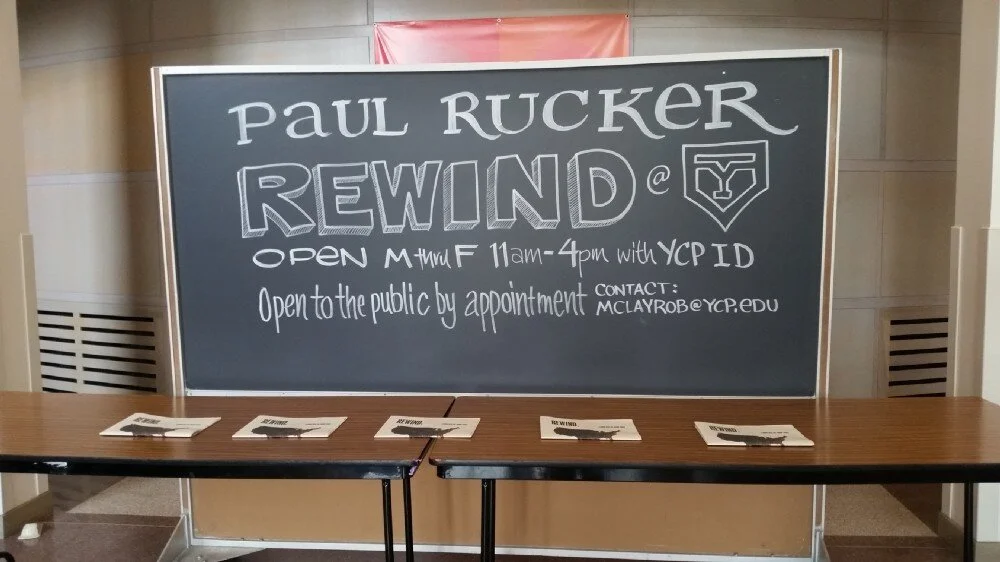 PAUL RUCKER
REWIND @ Y
OPEN M thru F 11am-4pm with YCP ID
Open to the public by appointment CONTACT:
MCLAYROB@YCP.EDU
REWIND
REWIND
REWIND
REWIND
REWIND